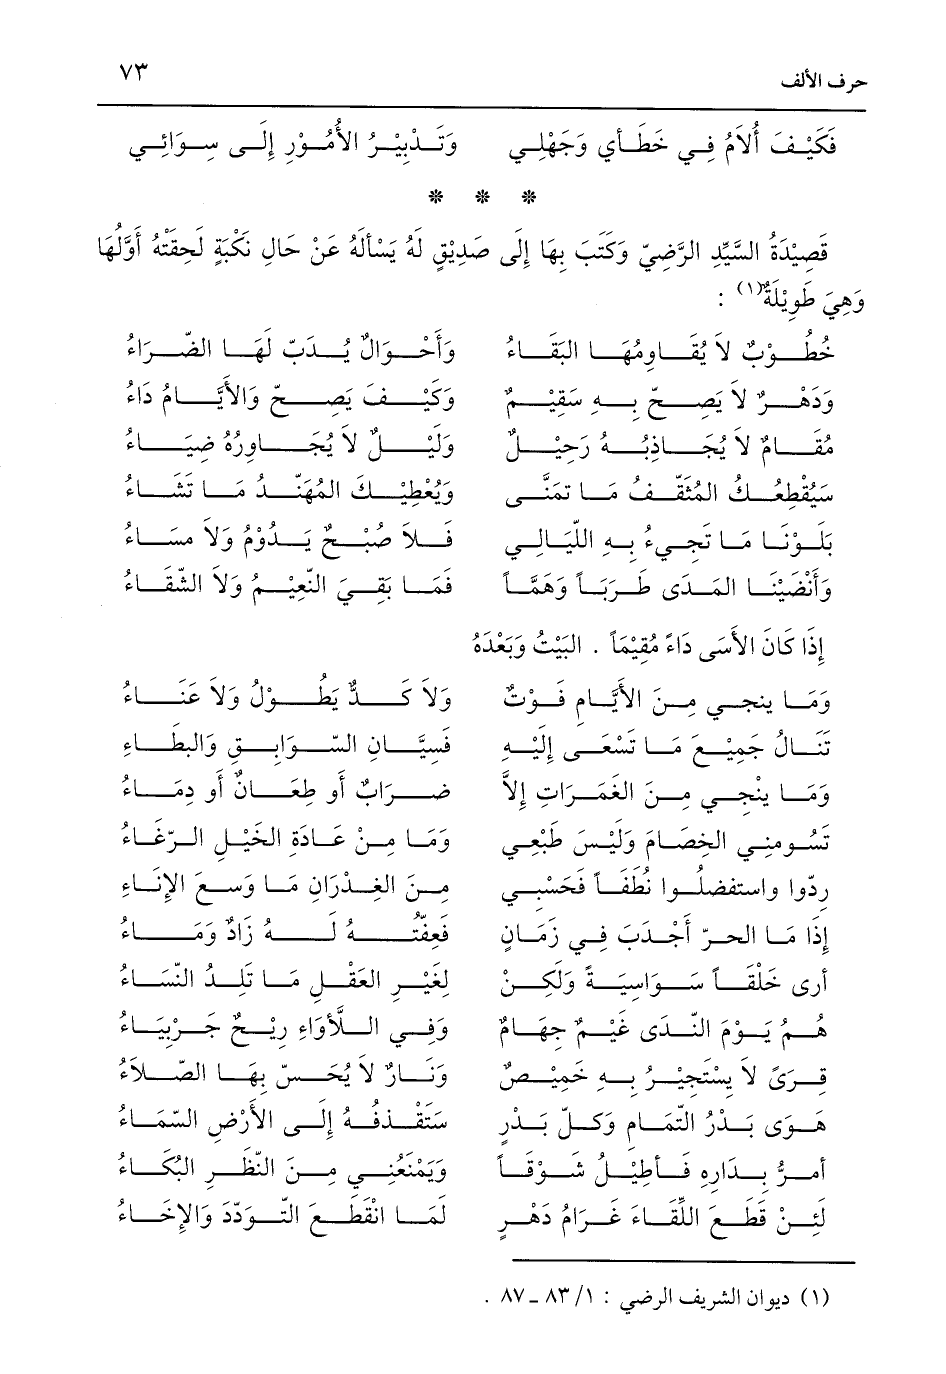 حرف الألف ٧٣
فَكَيْفَ أُلَامُ فِي خَطَأي وَجَهْلِي وَتَدْبِيْرُ الأُمُوْرِ إِلَى سِوَائِي
* * *
قَصِيْدَةُ السَّيِّدِ الرَّضِيّ وَكَتَبَ بِهَا إِلَى صَدِيْقٍ لَهُ يَسْألَهُ عَنْ حَالِ نَكْبَةٍ لَحِقَتْهُ أَوَّلُهَا
وَهِيَ طَوِيْلَةٌ(١) :
خُطُوْبٌ لاَ يُقَاوِمُهَا البَقَاءُ وَأَحْوَالٌ يُدَبّ لَهَا الضّرَاءُ
وَدَهْرٌ لاَ يَصِحّ بِهِ سَقِيْمٌ وَكَيْفَ يَصِحّ وَالأَيَّامُ دَاءُ
مُقَامٌ لاَ يُجَاذِبُهُ رَحِيْلٌ وَلَيْلٌ لاَ يُجَاوِرُهُ ضِيَاءُ
سَيُقطِعُكَ المُثَقّفُ مَا تَمَنَّى وَيُعْطِيْكَ المُهَنّدُ مَا تَشَاءُ
بَلَوْنَا مَا تَجِيءُ بِهِ اللّيَالِي فَلاَ صُبْحٌ يَدُوْمُ وَلاَ مَسَاءُ
وَأَنْضَيْنَا المَدَى طَرَبَاً وَهَمَّاً فَمَا بَقِيَ النّعِيْمُ وَلاَ الشّقَاءُ
إِذَا كَانَ الأَسَى دَاءً مُقِيْمَاً . البَيْتُ وَبَعْدَهُ
وَمَا ينجِي مِنَ الأَيَّامِ فَوْتٌ وَلاَ كَدٌّ يَطُوْلُ وَلاَ عَنَاءُ
تَنَالُ جَمِيْعَ مَا تَسْعَى إِلَيْهِ فَسِيَّانِ السّوَابِقُ وَالبِطَاءِ
وَمَا ينْجِي مِنَ الغَمَرَاتِ إِلاَّ ضِرَابٌ أَو طِعَانٌ أَو دِمَاءُ
تَسُومِنِي الخِصَامَ وَلَيْسَ طَبْعِي وَمَا مِنْ عَادَةِ الخَيْلِ الرّغَاءُ
ردّوا واستفضلُوا نُطَفَاً فَحَسْبِي مِنَ الغدْرَانِ مَا وَسِعَ الإِنَاءِ
إِذَا مَا الحرّ أَجْدَبَ فِي زَمَانٍ فَعِفّتهُ لَهُ زَادٌ وَمَاءُ
أرَى خَلْقَاً سَوَاسِيَةً وَلَكِنْ لِغَيْرِ العَقْلِ مَا تَلِدُ النّسَاءُ
هُمُ يَوْمَ النّدَى غَيْمٌ جِهَامٌ وَفِي الَّلأْوَاءِ رِيْحٌ جَرْبِيَاءُ
قِرَىً لاَ يَسْتَجِيْرُ بِهِ خَمِيْصٌ وَنَارٌ لاَ يُحَسّ بِهَا الصّلاَءُ
هَوَى بَدْرُ التّمَامِ وَكلّ بَدْرٍ سَتَقْذفُهُ إِلَى الأَرْضِ السّمَاءُ
أمرُّ بِدَارِهِ فَأطِيْلُ شَوْقَاً وَيَمْنَعُنِي مِنَ النّظَرِ البُكَاءُ
لَئِنْ قَطَعَ اللِّقَاءَ غَرَامُ دَهْرٍ لَمَا انْقَطَعَ التّوَدّدَ وَالإِخَاءُ
(١) ديوان الشريف الرضي : ١/ ٨٣ ـ ٨٧ .